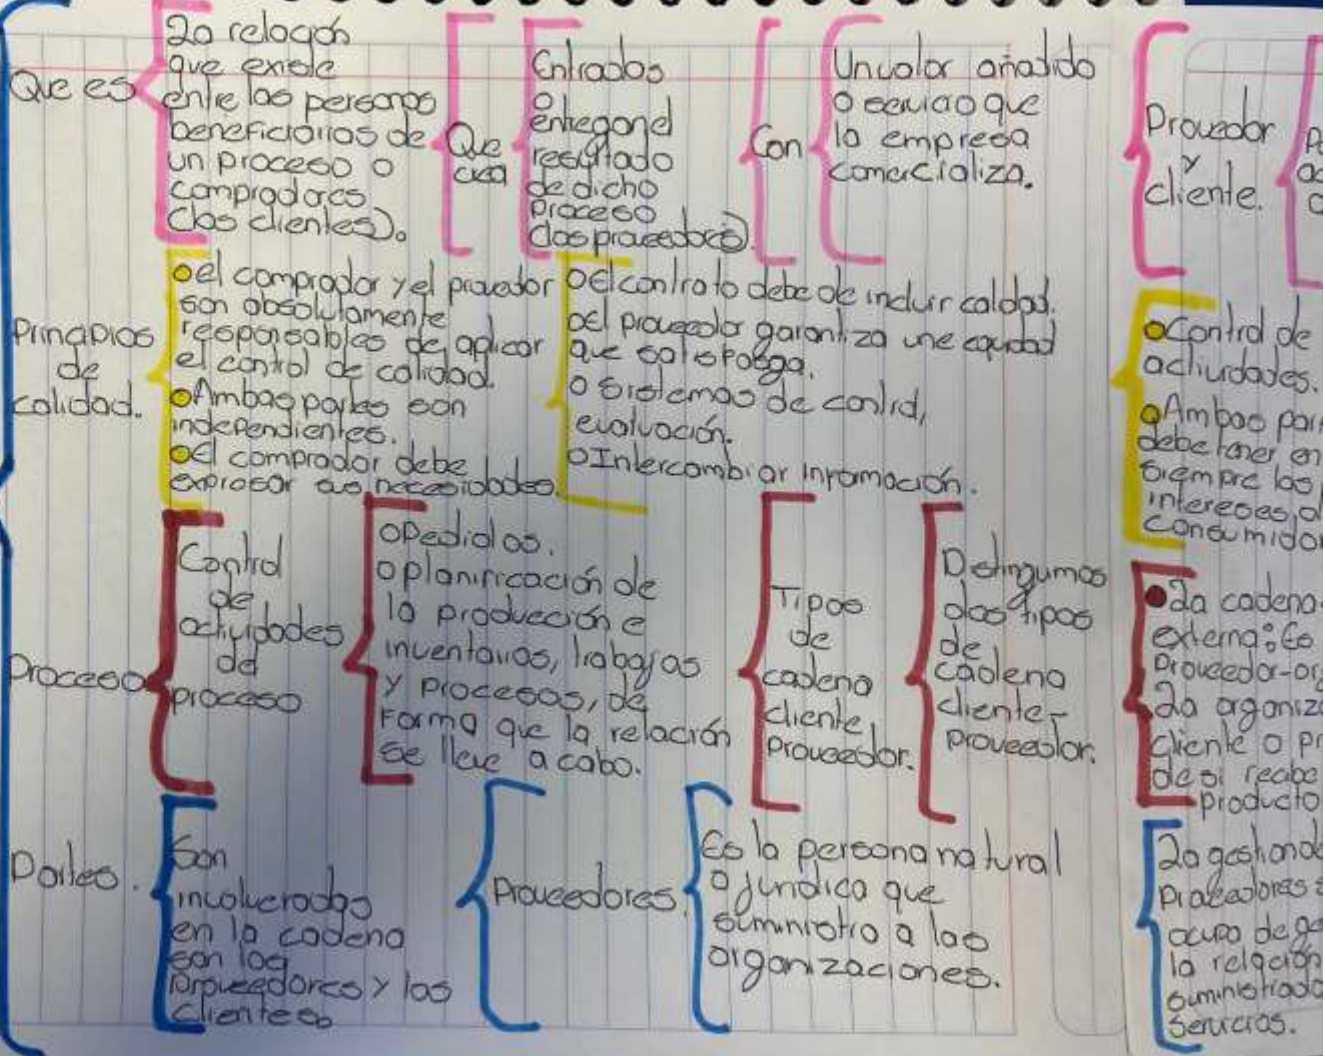 Que es
La relación
que existe
entre las personas
beneficiarios de
un proceso o
compradores
(los clientes).
Que
crea
Entradas
o
entregan el
resultado
de dicho
proceso
(los proveedores)
Con
Un valor añadido
o servicio que
la empresa
comercializa.
Proveedor
y
cliente.
Principios
de
calidad.
el comprador y el provedor
son absolutamente
responsables de aplicar
el control de calidad.
Ambas partes son
independientes.
El comprador debe
expresar sus necesidades.
El contrato debe de incluir calidad.
El proveedor garantiza une equidad
que satisfasga.
Sistemas de control,
evaluación.
Intercambiar información.
Control de
actividades.
Ambas
debe tener en
siempre los
intereses
Proceso
Control
de
actividades
del
proceso
Pedidos.
planificación de
la producción e
inventarios, trabajas
y procesos, de
forma que la relación
se lleve a cabo.
Tipos
de
cadena
cliente,
proveedor.
dos tipos
de
cadena
cliente-
proveedor.
La cadena
externa: Es
Proveedor-
La
cliente o
de si recibe
producto
Partes.
Son
involucrados
en la cadena
son los
proveedores y los
clientes
Proveedores.
Es la persona natural
o jurídica que
suministra a las
organizaciones.
La
proveedores
ocupa de
la relación
servicios.